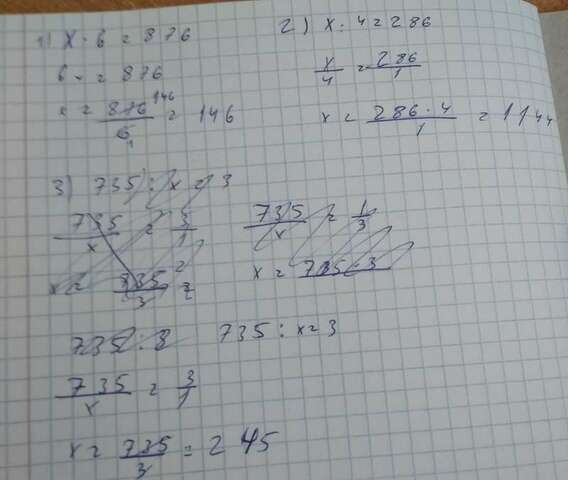 1) x · 6 = 876
6 · = 876
x = 876/6 = 146
146
1
2) x : 4 = 286
x/4 = 286/1
x = 286 · 4/1 = 1144
3) 735 : x = 3
735/x = 3/1
x = 735/3 =
735/x = 1/3
x = 735 · 3
735 : 8
735 : x = 3
735/x = 3/1
x = 735/3 = 245